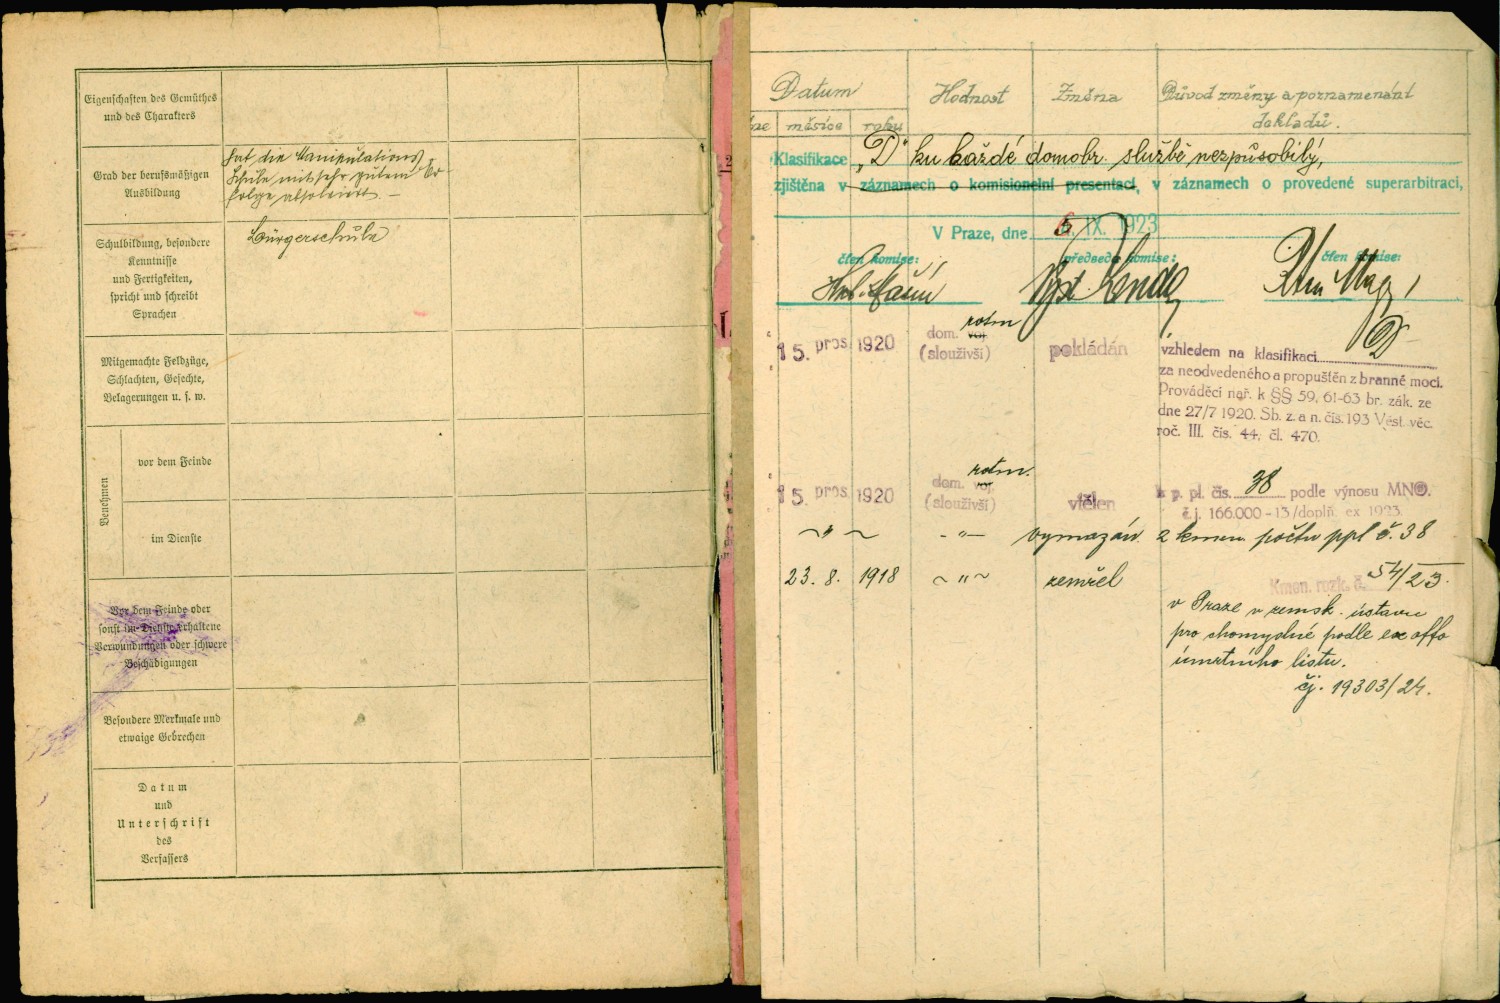 Eigenschaften des Gemüthes
und des Charakters
Grad der berufsmäßigen
Ausbildung
Hat die Manipulations
Schule mit sehr gutem Er-
folge absolviert —
Schulbildung, besondere
Kenntnisse
und Fertigkeiten,
spricht und schreibt
Sprachen
Bürgerschule
Mitgemachte Feldzüge,
Schlachten, Gefechte,
Belagerungen u. s. w.
Benehmen
vor dem Feinde
im Dienste
Vor dem Feinde oder
sonst im Dienste erhaltene
Verwundungen oder schwere
Beschädigungen
Besondere Merkmale und
etwaige Gebrechen
Datum
und
Unterschrift
des
Verfassers
Datum Hodnost Změna Důvod změny a poznamenání
dokladů.
ne měsíce roku
Klasifikace „D" ku každé domobr. službě nezpůsobilý,
zjištěna v záznamech o komisionelní presentaci, v záznamech o provedené superarbitraci,
V Praze, dne 6. IX. 1923
člen komise: předseda komise: člen komise:
15. pros. 1920 dom. voj. rotm (sloužívší) pokládán vzhledem na klasifikaci D
za neodvedeného a propuštěn z branné moci.
Prováděcí nař. k §§ 59, 61-63 br. zák. ze
dne 27/7 1920. Sb. z. a n. čís. 193 Věst. věc.
roč. III. čís. 44, čl. 470.
15. pros. 1920 dom. voj. rotm. (sloužívší) vtělen k p. pl. čís. 38 podle výnosu MNO.
č.j. 166.000-13/doplň. ex 1923.
〜 " 〜 - " — vymazán z kmen. počtu ppl č. 38
Kmen. rozk. č. 54/23.
23. 8. 1918 〜 " 〜 zemřel
v Praze v zemsk. ústavu
pro choromyslné podle ex offo
úmrtního listu.
čj. 19303/24.